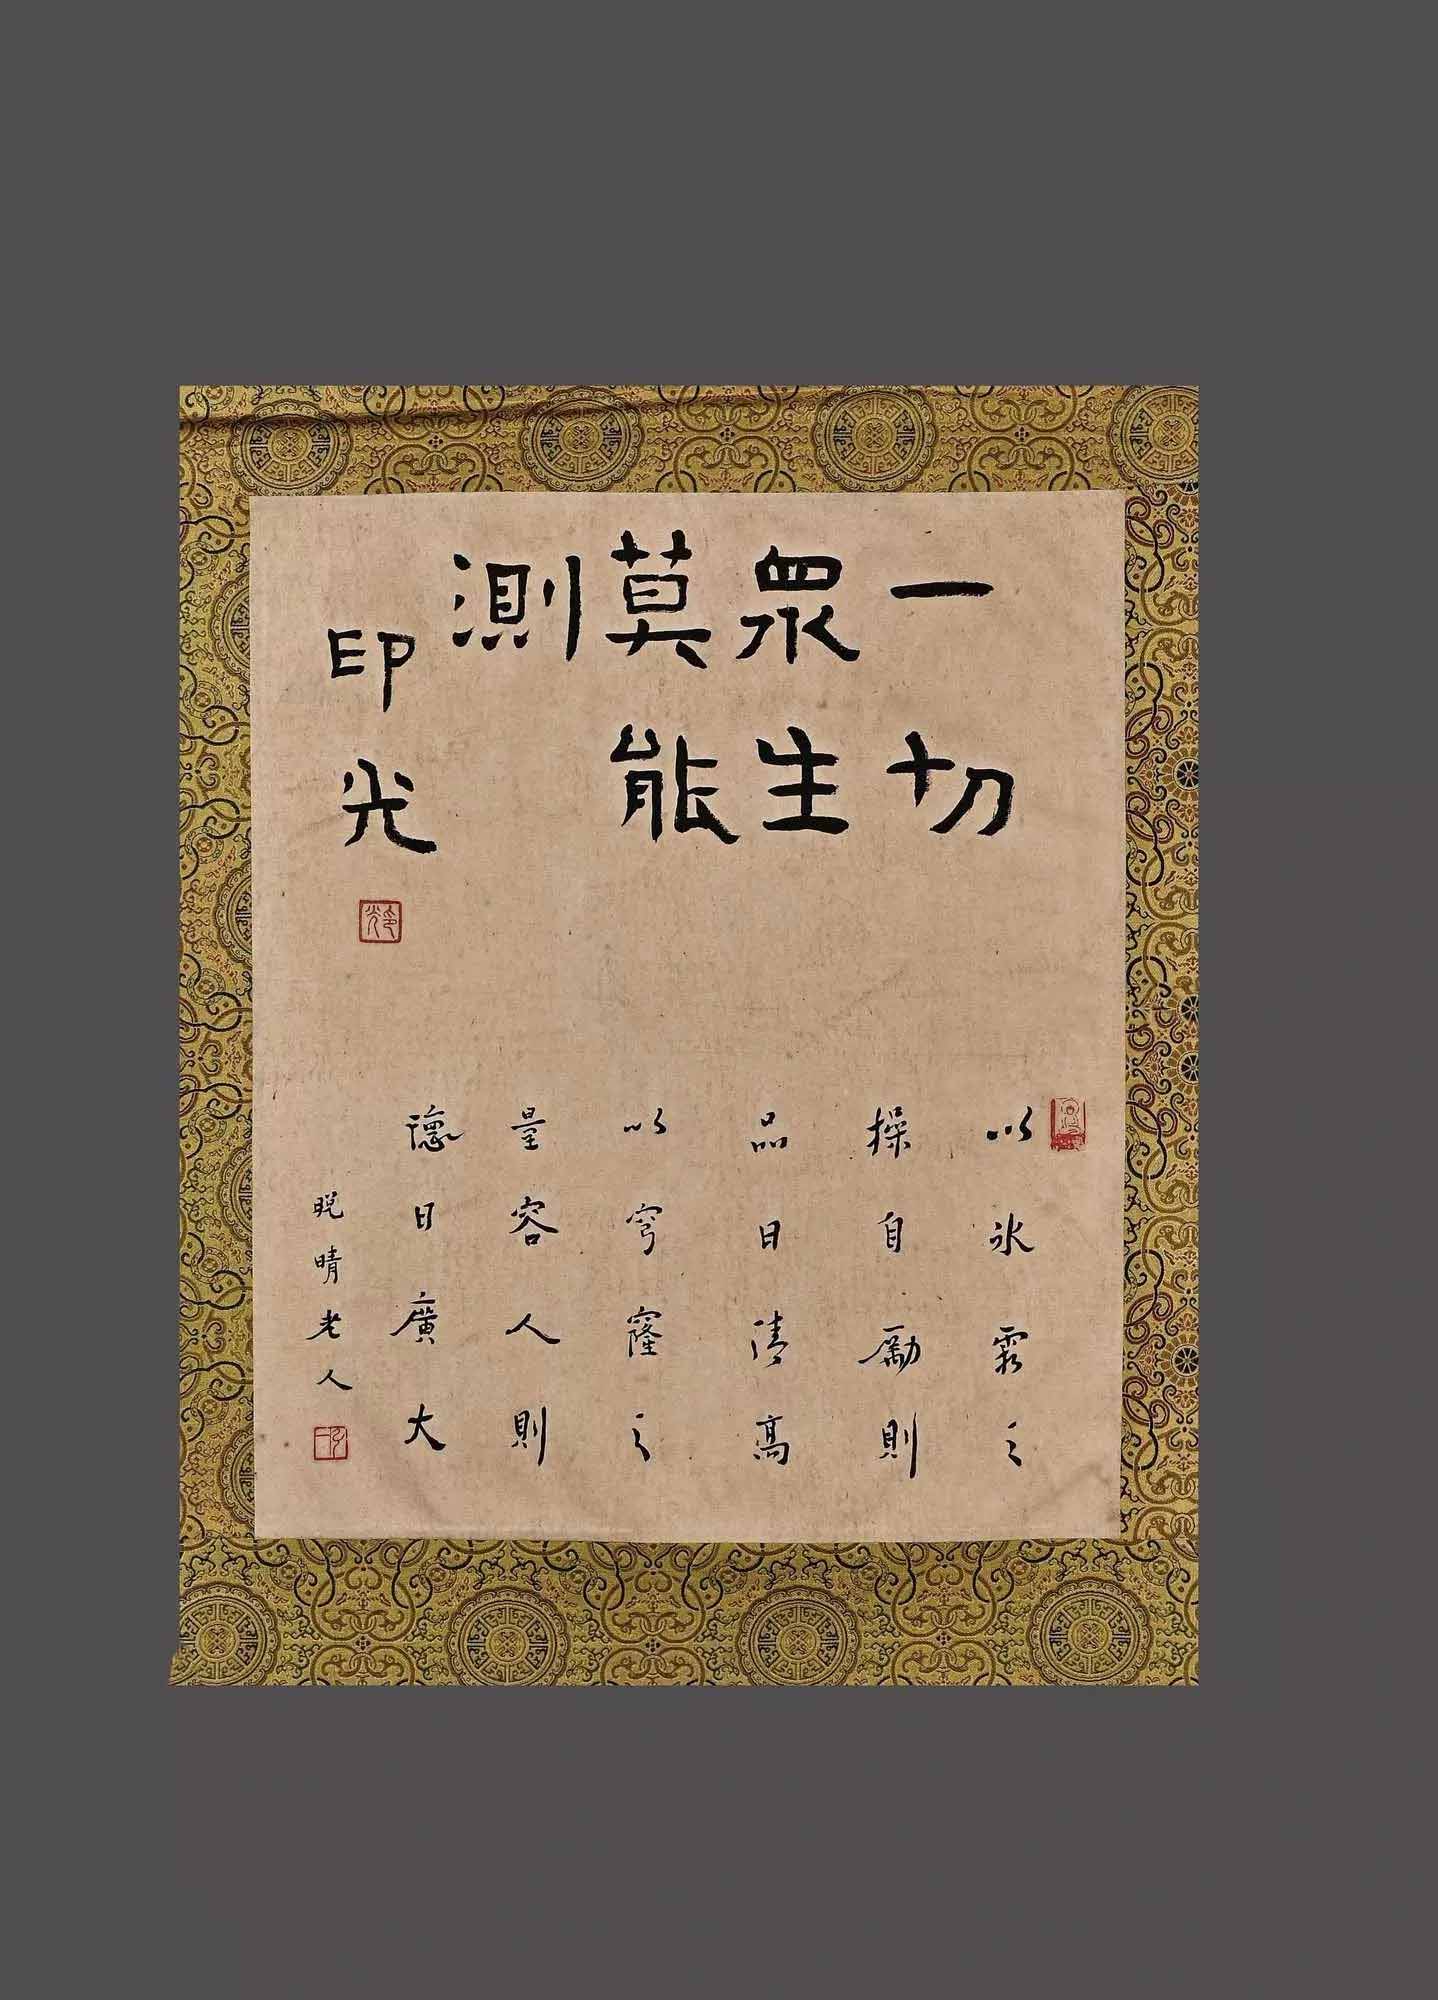 一切
眾生
莫能
測
印光
印光
以冰霜之
操自勵則
品日清高
以穹窿之
量容人則
德日廣大
晚晴老人
弘一